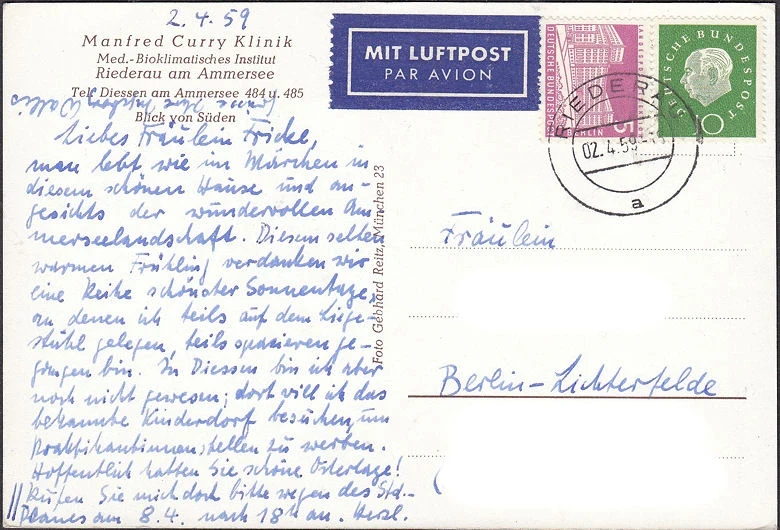 2.4.59
Manfred Curry Klinik
Med.-Bioklimatisches Institut
Riederau am Ammersee
Tel. Diessen am Ammersee 484 u. 485
Blick von Süden
Liebes Fräulein Fricke,
man lebt wie im Märchen in
diesem schönen Hause und an-
gesichts der wundervollen Am-
merseelandschaft. Diesem selten
warmen Frühling verdanken wir
eine Reihe schönster Sonnentage,
an denen ich teils auf dem Liege-
stuhl gelegen, teils spazieren ge-
gangen bin. In Diessen bin ich aber
noch nicht gewesen; dort will ich das
bekannte Kinderdorf besuchen, um
Praktikantinnenstellen zu werben.
Hoffentlich hatten Sie schöne Ostertage!
Rufen Sie mich doch bitte wegen des Std.-
Planes am 8.4. nach 18h an. Herzl.
Foto Gebhard Reitz, München 23
MIT LUFTPOST
PAR AVION
DEUTSCHE BUNDESPOST
BERLIN
5
DEUTSCHE BUNDESPOST
10
RIEDERAU
02.4.59
a
Fräulein
Berlin-Lichterfelde